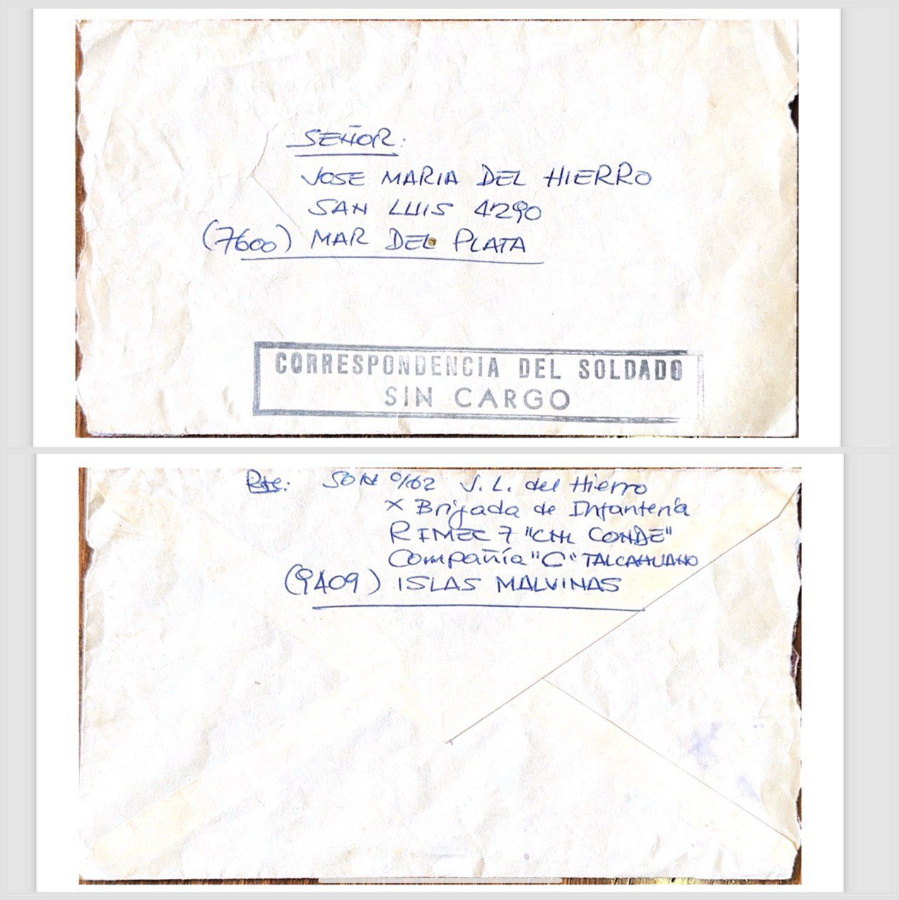 SEÑOR:
JOSE MARIA DEL HIERRO
SAN LUIS 4290
(7600) MAR DEL PLATA
CORRESPONDENCIA DEL SOLDADO
SIN CARGO
Rte: SOLD C/62 J.L. del Hierro
X Brigada de Infantería
RIMEC 7 "CNL CONDE"
Compañía "C" TALCAHUANO
(9409) ISLAS MALVINAS